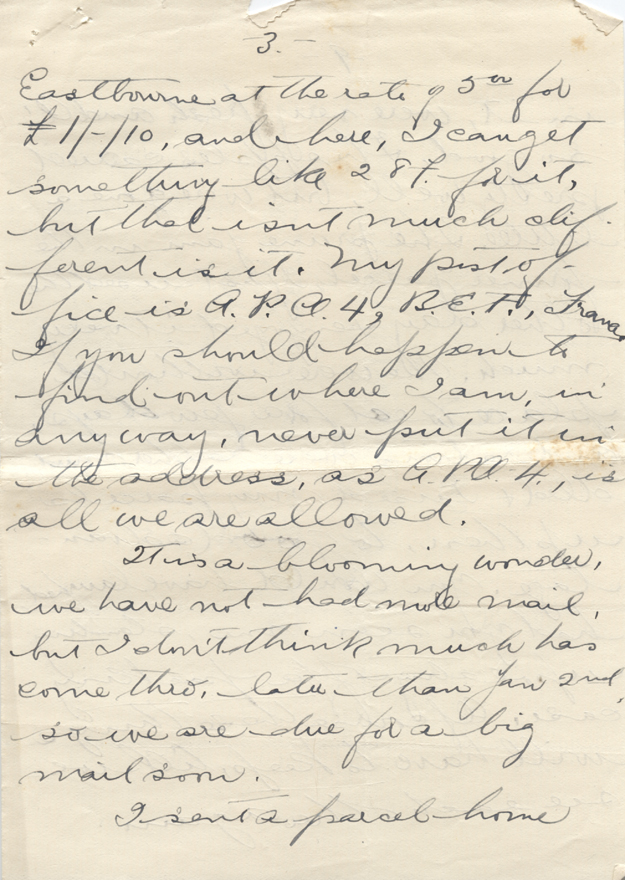 3.-
Eastbourne at the rate of 5⁰⁰ for
£1/-/10, and here, I can get
something like 28 f. for it,
but that isn't much dif-
ferent is it. My post of-
fice is A.P.O. 4, B.E.F., France
If you should happen to
find out where I am, in
anyway, never put it in
the address, as A.P.O. 4., is
all we are allowed.
It is a blooming wonder,
we have not had more mail,
but I don't think much has
come thro, later than Jan 2nd,
so we are due for a big
mail soon.
I sent a parcel home